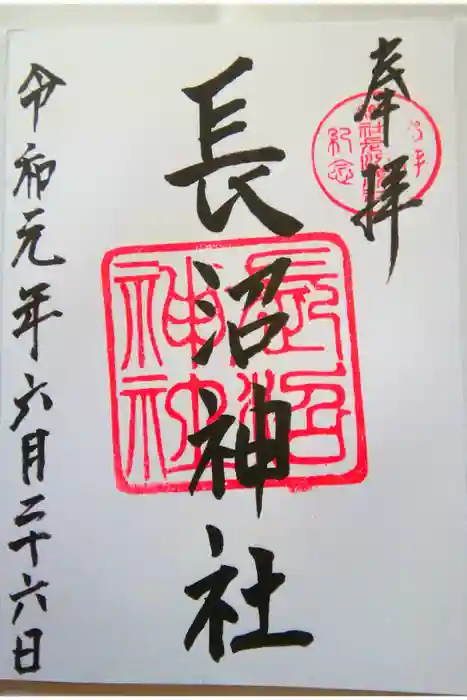 奉拝
長沼神社
長沼神社
令和元年六月二十六日